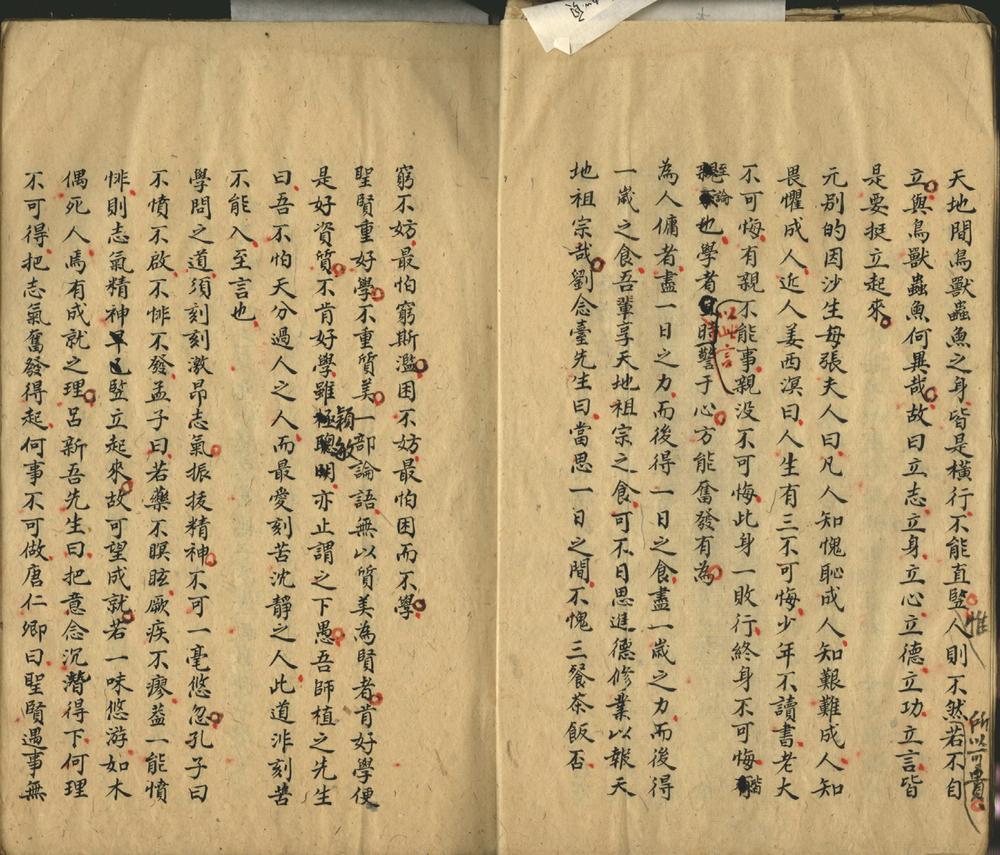 天地間鳥獸蟲魚之身皆是橫行不能直竪人則不然若不自
惟
所以可貴
立與鳥獸蟲魚何異哉故曰立志立身立心立德立功立言皆
是要挺立起來
元别的因沙生母張夫人曰凡人知愧恥成人知艱難成人知
畏懼成人近人姜西溟曰人生有三不可悔少年不讀書老大
不可悔有親不能事親没不可悔此身一敗行終身不可悔皆
至論
也學者時警于心方能奮發有為
以此言
為人傭者盡一日之力而後得一日之食盡一歲之力而後得
一歲之食吾輩享天地祖宗之食可不日思進德修業以報天
地祖宗哉劉念臺先生曰當思一日之間不愧三餐茶飯否
窮不妨最怕窮斯濫困不妨最怕困而不學
聖賢重好學不重質美一部論語無以質美為賢者肯好學便
是好資質不肯好學雖穎敏亦止謂之下愚吾師植之先生
曰吾不怕天分過人之人而最愛刻苦沈靜之人此道非刻苦
不能入至言也
學問之道須刻刻激昂志氣振拔精神不可一毫悠忽孔子曰
不憤不啟不悱不發孟子曰若藥不瞑眩厥疾不瘳葢一能憤
悱則志氣精神早已竪立起來故可望成就若一味悠游如木
偶死人焉有成就之理呂新吾先生曰把意念沉潛得下何理
不可得把志氣奮發得起何事不可做唐仁卿曰聖賢遇事無